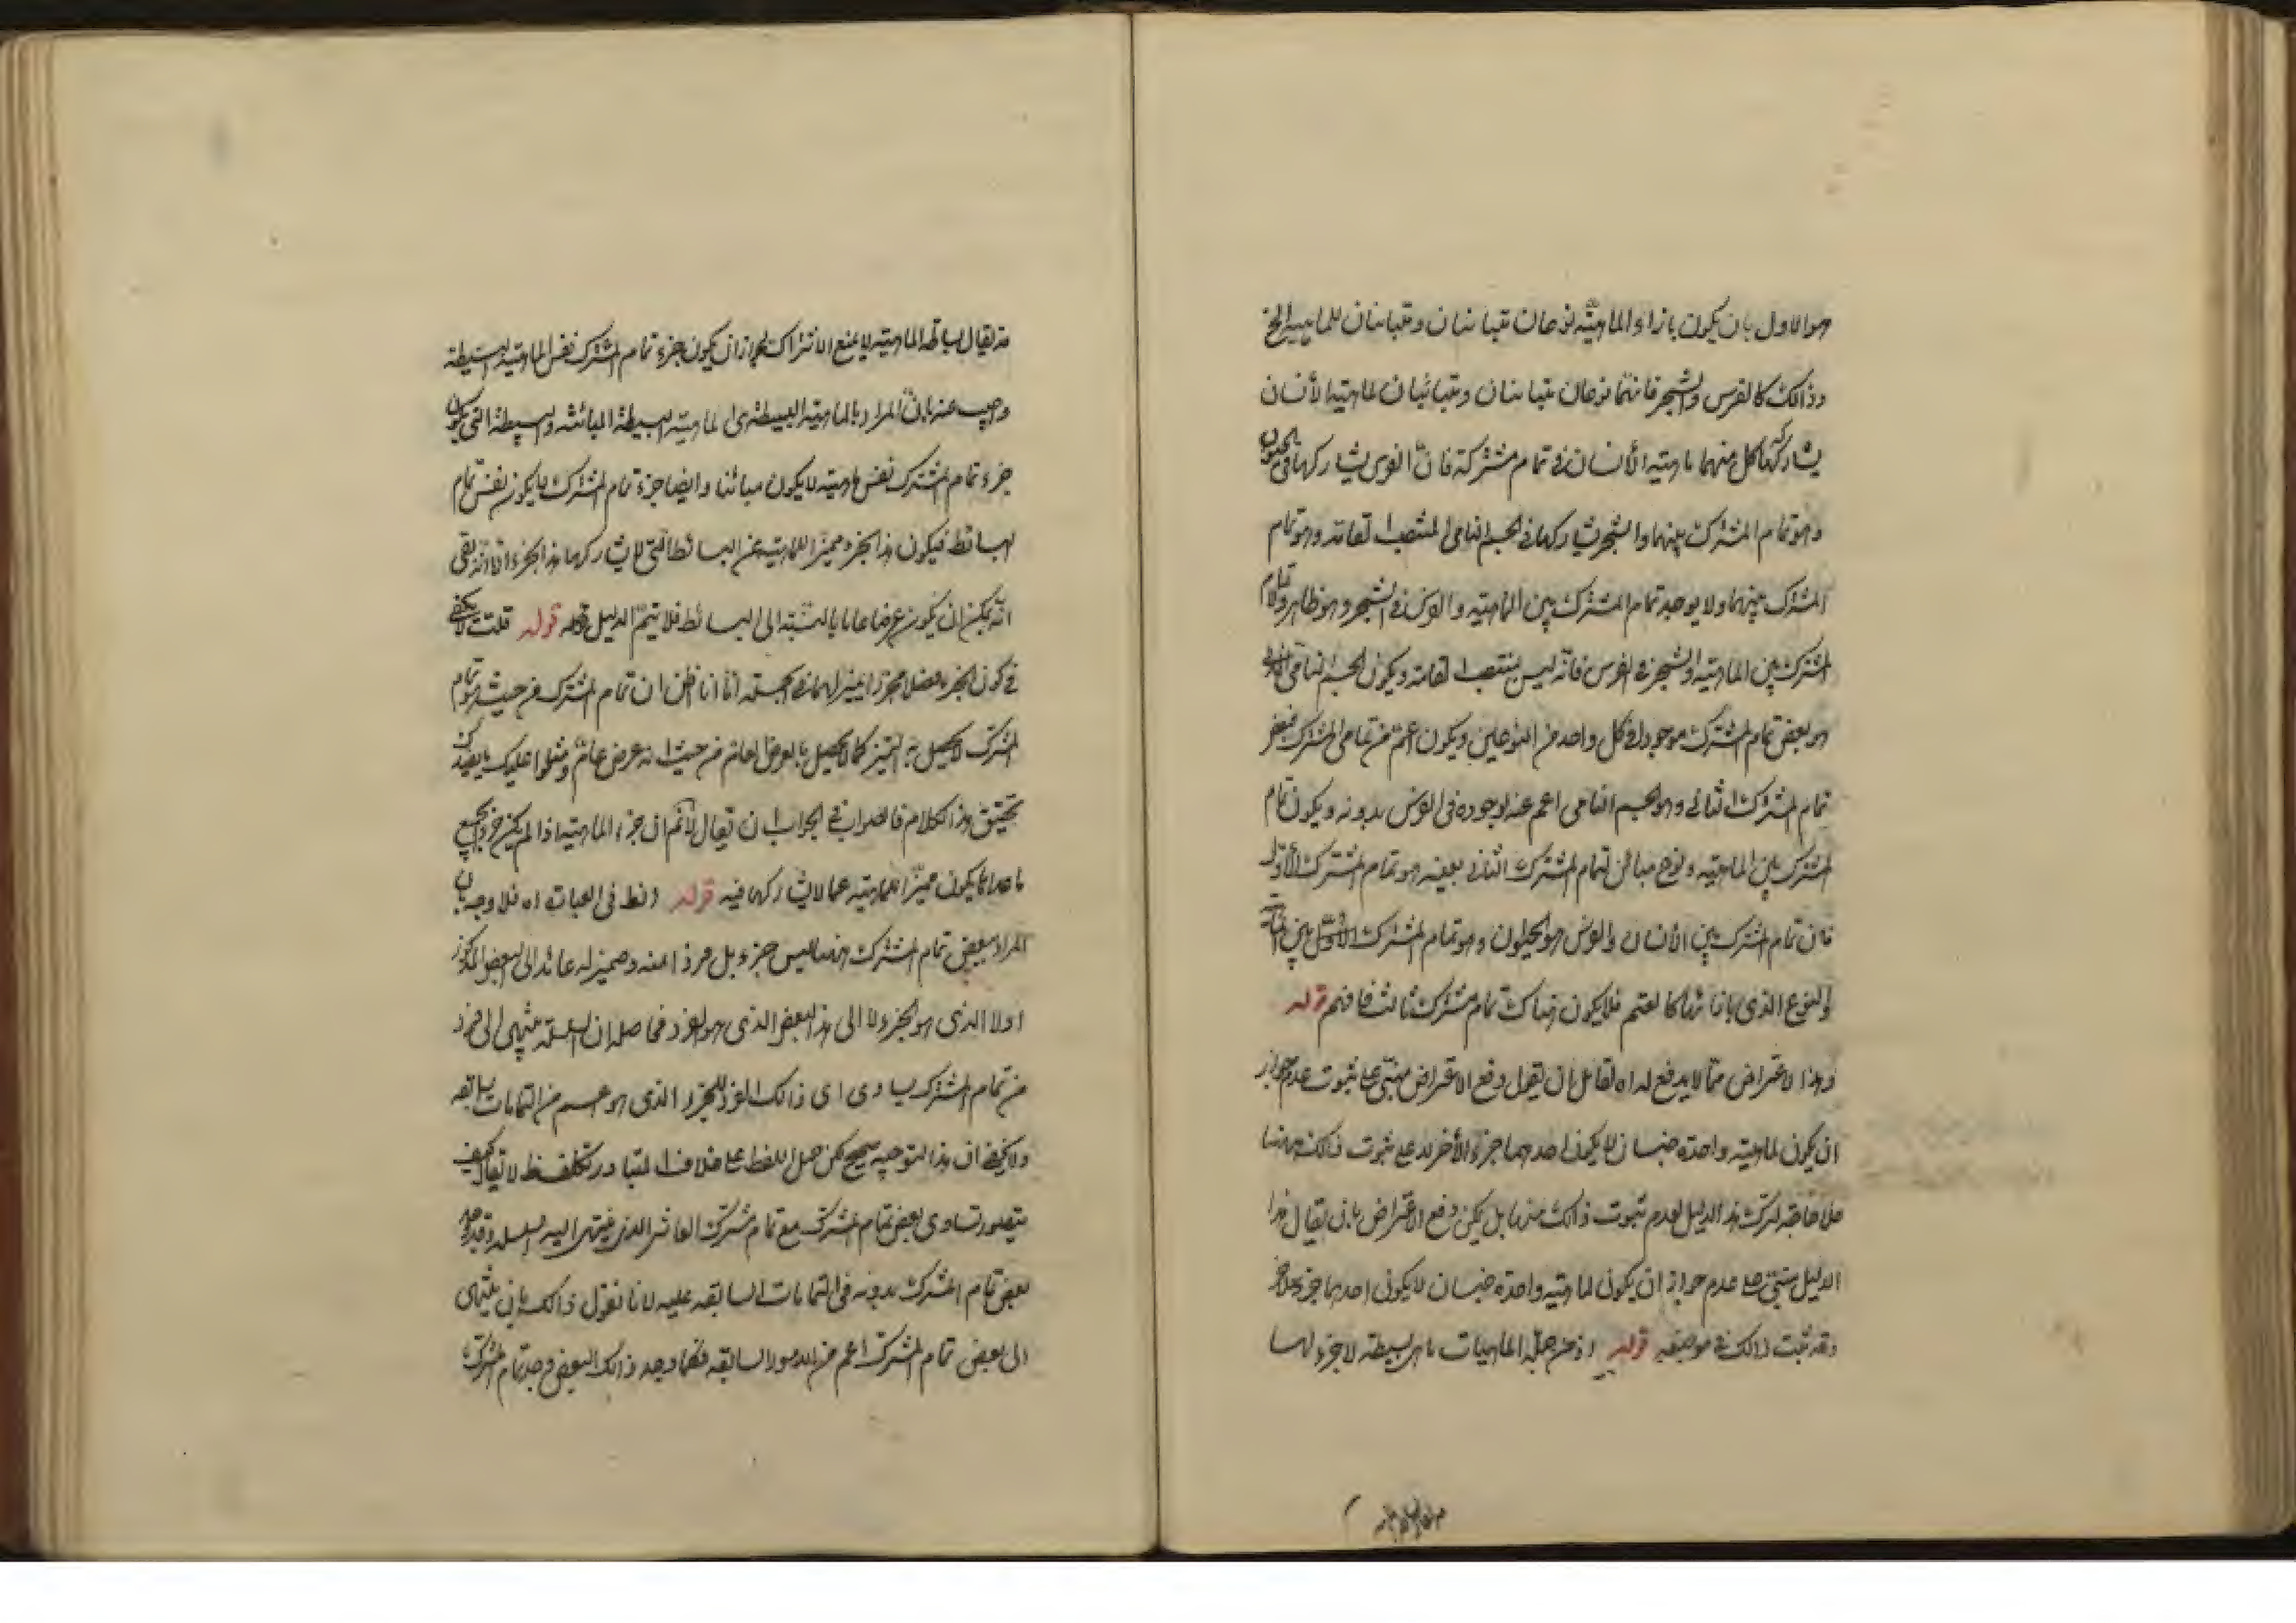 هو الاول بان يكون بازاء الماهيّة نوعان متباينان ومتباينان للماهية الخ
وذالك كالفرس والشجر فانهما نوعان متباينان ومتباينان لماهية الأنسان
يشاركها كل منهما ماهية الأنسان في تمام مشتركة فانّ الفرس يشاركها في الحيوان
وهو تمام المشترك بينهما والشجر يشاركها في الجسم النامى المنتصب القامة وهو تمام
المشترك بينهما ولا يوجد تمام المشترك بين الماهية والفرس في الشجر وهو ظاهر ولا تمام
المشترك بين الماهية والشجر في الفرس فانّه ليس بمنتصب القامة ويكون الجسم النامى الذى
هو بعض تمام المشترك موجودا في كل واحد من النوعين ويكون اعم من تمامى المشترك فبعض
تمام المشترك الثانى وهو الجسم النامى اعم عنه لوجوده فى الفرس بدونه ويكون تمام
المشترك بين الماهية ونوع مباين لتمام المشترك الثانى بعينه هو تمام المشترك الأوّل
فان تمام المشترك بين الأنسان والفرس هو الحيوان وهو تمام المشترك الأوّل بين الماهية
والنوع الذى بازائها كالغنم فلا يكون هناك تمام مشترك ثالث فافهم قوله
وهذا الاعتراض ممّا لا يدفع له اه لقائل ان يقول دفع الاعتراض مبتنى على ثبوت عدم جواز
ان يكون لماهية واحدة جنسان لا يكون احدهما جزء الأخر بدعى ثبوت ذلك ههنا
فلا حاجة لترك هذا الدليل لعدم ثبوت ذالك منها بل يمكن دفع الاعتراض بان يقال هذا
الدليل مبتنى على عدم جواز ان يكون لماهية واحدة جنسان لا يكون احدهما جزء للاخر
وقد ثبت ذالك في موضعه قوله اذ من جملة الماهيات ماهى بسيطة لا جزء لها
قد يقال بساطة الماهية لا يمنع الاشتراك لجواز ان يكون جزء تمام المشترك نفس الماهية البسيطة
واجيب عنه بانّ المراد بالماهية البسيطة هى الماهية البسيطة المباينة والبسيطة التى يكون
جزء تمام المشترك نفس ماهية لا يكون مباينا وايضا جزء تمام المشترك لا يكون نفس تمام
البسائط فيكون هذا الجزء مميزا للماهية عن البسائط التى لا يشاركها هذا الجزء الا انّه بقى
انّه يمكن ان يكون عرضا عاما بالنسبة الى البسائط فلا يتمّ الدليل قوله قلت لا يكفى
في كون الجزء فصلا مجرد تميز لها في الجملة انا اظن ان تمام المشترك من حيث هو تمام
المشترك لا يحصل به التميز كما لا يحصل بالعرض العام من حيث انه عرض عام
تحقيق هذا الكلام فالصواب في الجواب ان يقال لا نم ان جزء الماهية اذا لم يكن جزء لجميع
ما عداها يكون مميزا للماهية عما لا يشاركها فيه قوله وانظر فى العبارت اه فلا وجه بان
المراد ببعض تمام المشترك ههنا ليس جزء بل فرد منه وضميره له عائد الى البعض المذكور
اولا الذى هو الجزء لا الى هذا البعض الذى هو الفرد فحاصله ان السلسلة ينتهى الى فرد
من تمام المشترك يساوى اى ذالك الفرد للجزء الذى هو اعم من التمامات السابقة
ولا يخفى ان هذا التوجيه صحيح لكن حمل اللفظ على خلاف المتبادر تكلف لا يقال كيف
يتصور تساوى بعض تمام المشترك مع تمام مشترك العاشر الذى ينتهى اليه السلسلة وقد وجد
بعض تمام المشترك بدونه فى التمامات السابقة عليه لانا نقول ذالك بان ينتهى
الى بعض تمام المشترك اعم من الامور السابقة فكلما وجد ذالك البعض وجد تمام المشترك